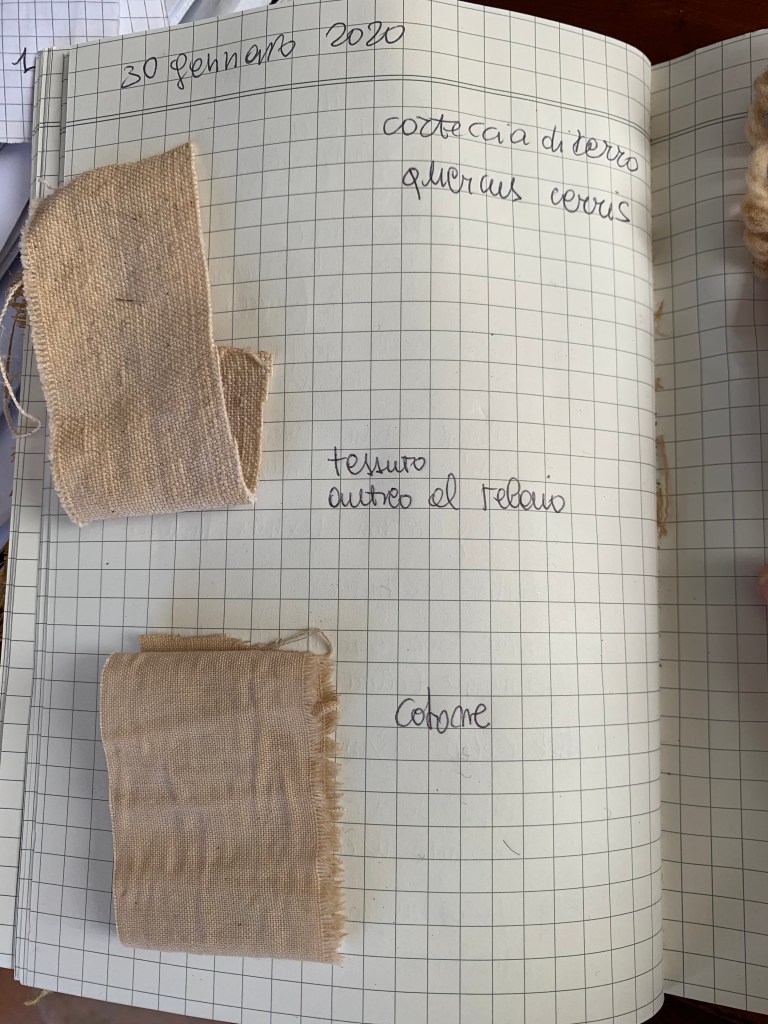 30 gennaro 2020
corteccia di cerro
quercus cerris
tessuto
antico al telaio
Cotone